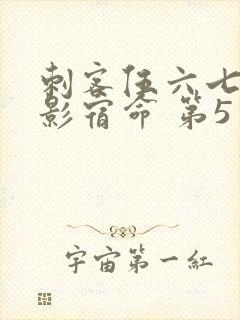 刺客伍六七
影宿命 第5
宇宙第一紅